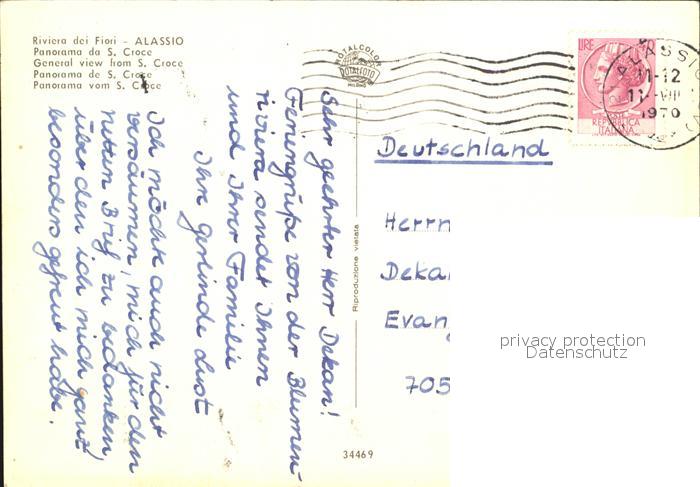 Riviera dei Fiori - ALASSIO
Panorama da S. Croce
General view from S. Croce
Panorama de S. Croce
Panorama vom S. Croce
ROTALCOLOR
ROTALFOTO
MILANO
LIRE
POSTE
REPUBBLICA
ITALIANA
ALASSIO
11-12
1970
Sehr geehrter Herr Dekan!
Feriengrüße von der Blumen-
riviera sendet Ihnen
und Ihrer Familie
Ihre Gerlinde Lust
Ich möchte auch nicht
versäumen, mich für den
netten Brief zu bedanken,
über den ich mich ganz
besonders gefreut habe.
Riproduzione vietata
34469
Deutschland
Herrn
Deka
Evang
705
privacy protection
Datenschutz